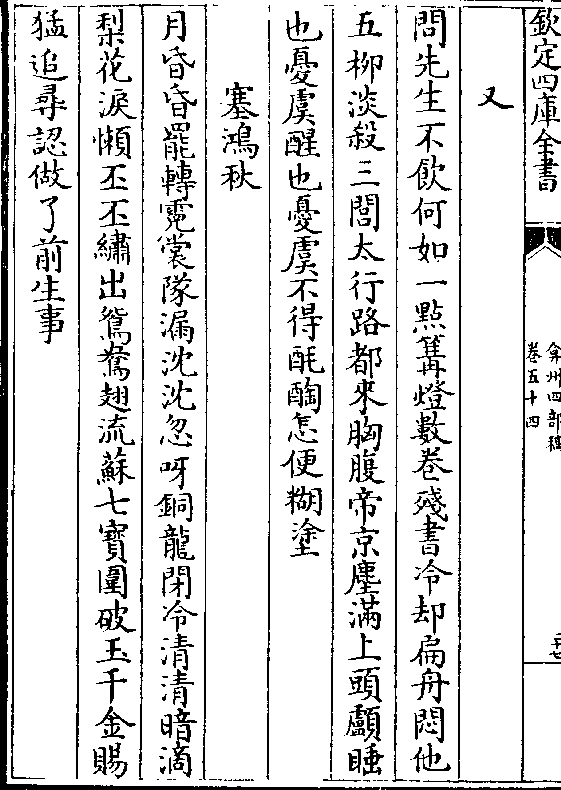 欽定四庫全書
弇州四部稿
卷五十四
二十七
又
問先生不飲何如一點篝燈數卷殘書冷却扁舟悶他
五柳淡殺三閭太行路都來胸腹帝京塵滿上頭顱睡
也憂虞醒也憂虞不得酕醄怎便糊塗
塞鴻秋
月昏昏罷轉霓裳隊漏沈沈忽呀銅龍閉冷清清暗滴
梨花淚懶丕丕繡出鴛鴦翅流蘇七寶圍破玉千金賜
猛追尋認做了前生事